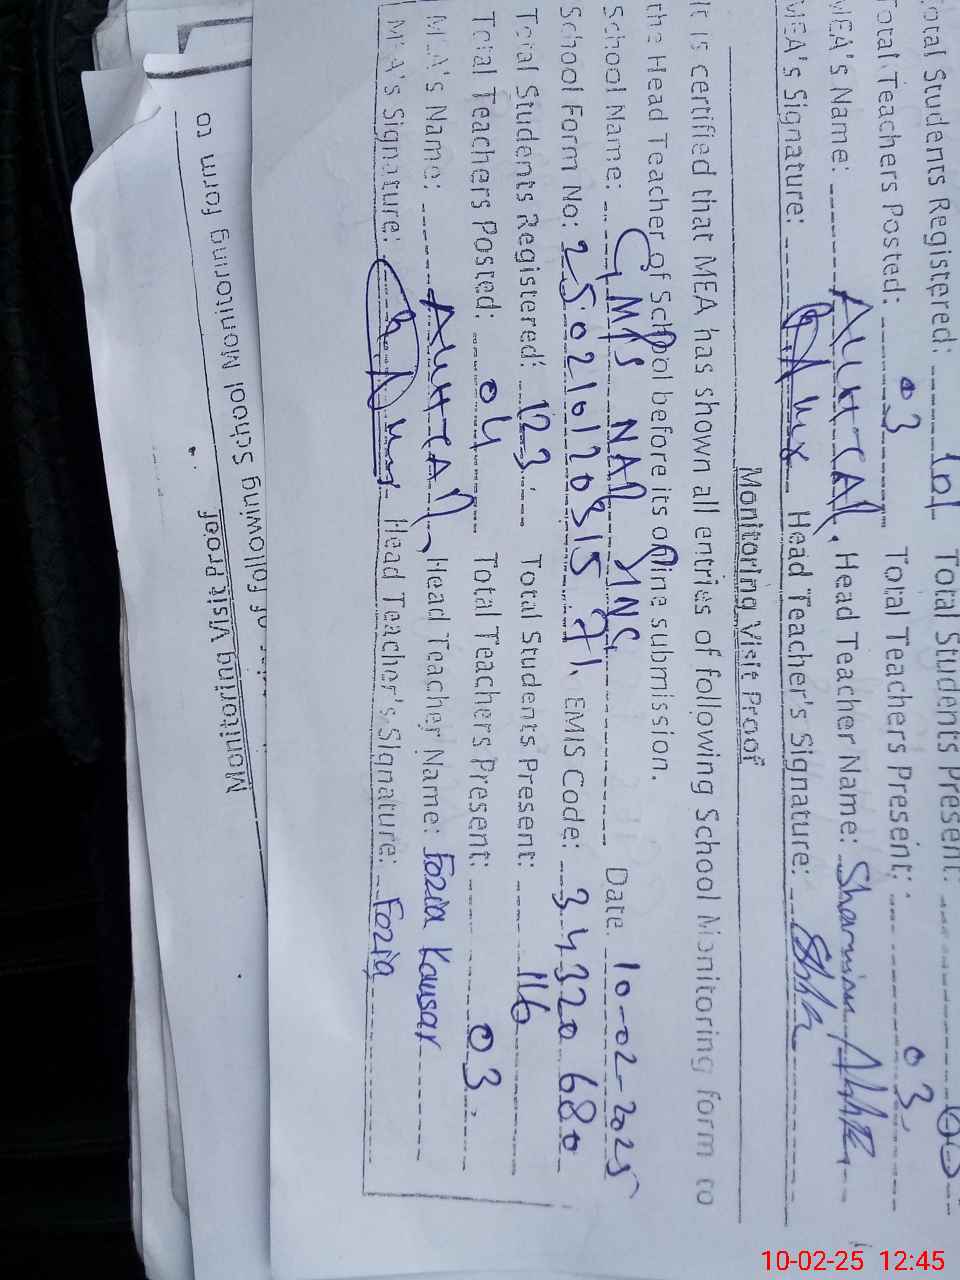 Total Students Registered: 101 Total Students Present:
Total Teachers Posted: 03 Total Teachers Present: 03
MEA's Name: Head Teacher Name:
MEA's Signature: Head Teacher's Signature:
Monitoring Visit Proof
It is certified that MEA has shown all entries of following School Monitoring form to
the Head Teacher of School before its online submission.
School Name: GMPS Date 10-02-2025
School Form No: EMIS Code: 34320680
Total Students Registered: 123 Total Students Present: 116
Total Teachers Posted: 04 Total Teachers Present: 03
MEA's Name: Head Teacher Name: Fozia Kausar
MEA's Signature: Head Teacher's Signature: Fozia
Monitoring Visit Proof
following School Monitoring form to
10-02-25 12:45